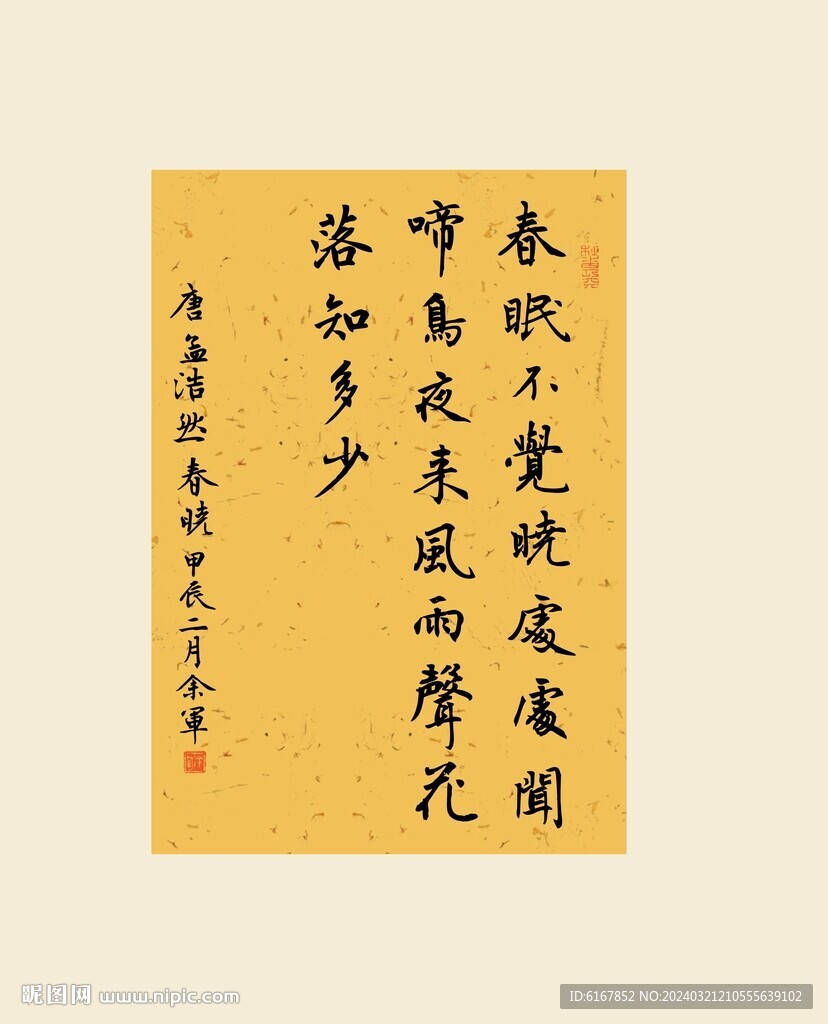 春眠不覺曉處處聞
啼鳥夜来風雨聲花
落知多少
唐孟浩然春曉甲辰二月余軍
昵图网 www.nipic.com
ID:6167852 NO:20240321210555639102